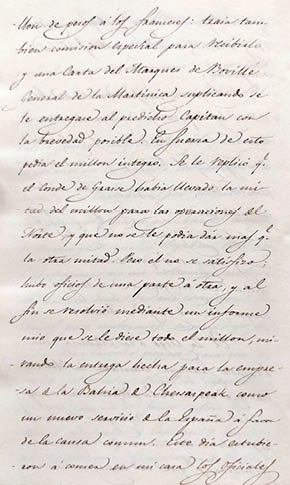 llon de pesos á los franceses: traia tam-
bien comision especial para recibirlo
y una Carta del Marques de Bovillé
General de la Martinica suplicando se
le entregase al predicho Capitan con
la brevedad posible. En fuerza de esto
pedia el millon integro. Se le replicó q.e
el Conde de Grasse habia llevado la mi-
tad del millon para las operaciones del
Norte, y que no se le podia dar mas q.e
la otra mitad. Pero el no se satisfizo:
hubo oficios de una parte á otra, y al
fin se resolvió mediante un informe
mio que se le diese todo el millon, mi-
rando la entrega hecha para la empre-
sa de la Bahia de Chesarpeak como
un nuevo servicio de la España á favor
de la causa comun. Este dia estubie-
ron á comer en mi casa los oficiales